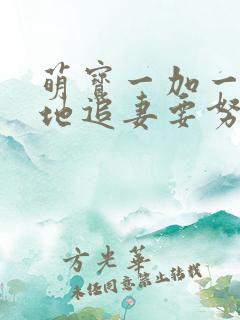 萌宝一加一
地追妻要努
方光华
未经同意禁止转载